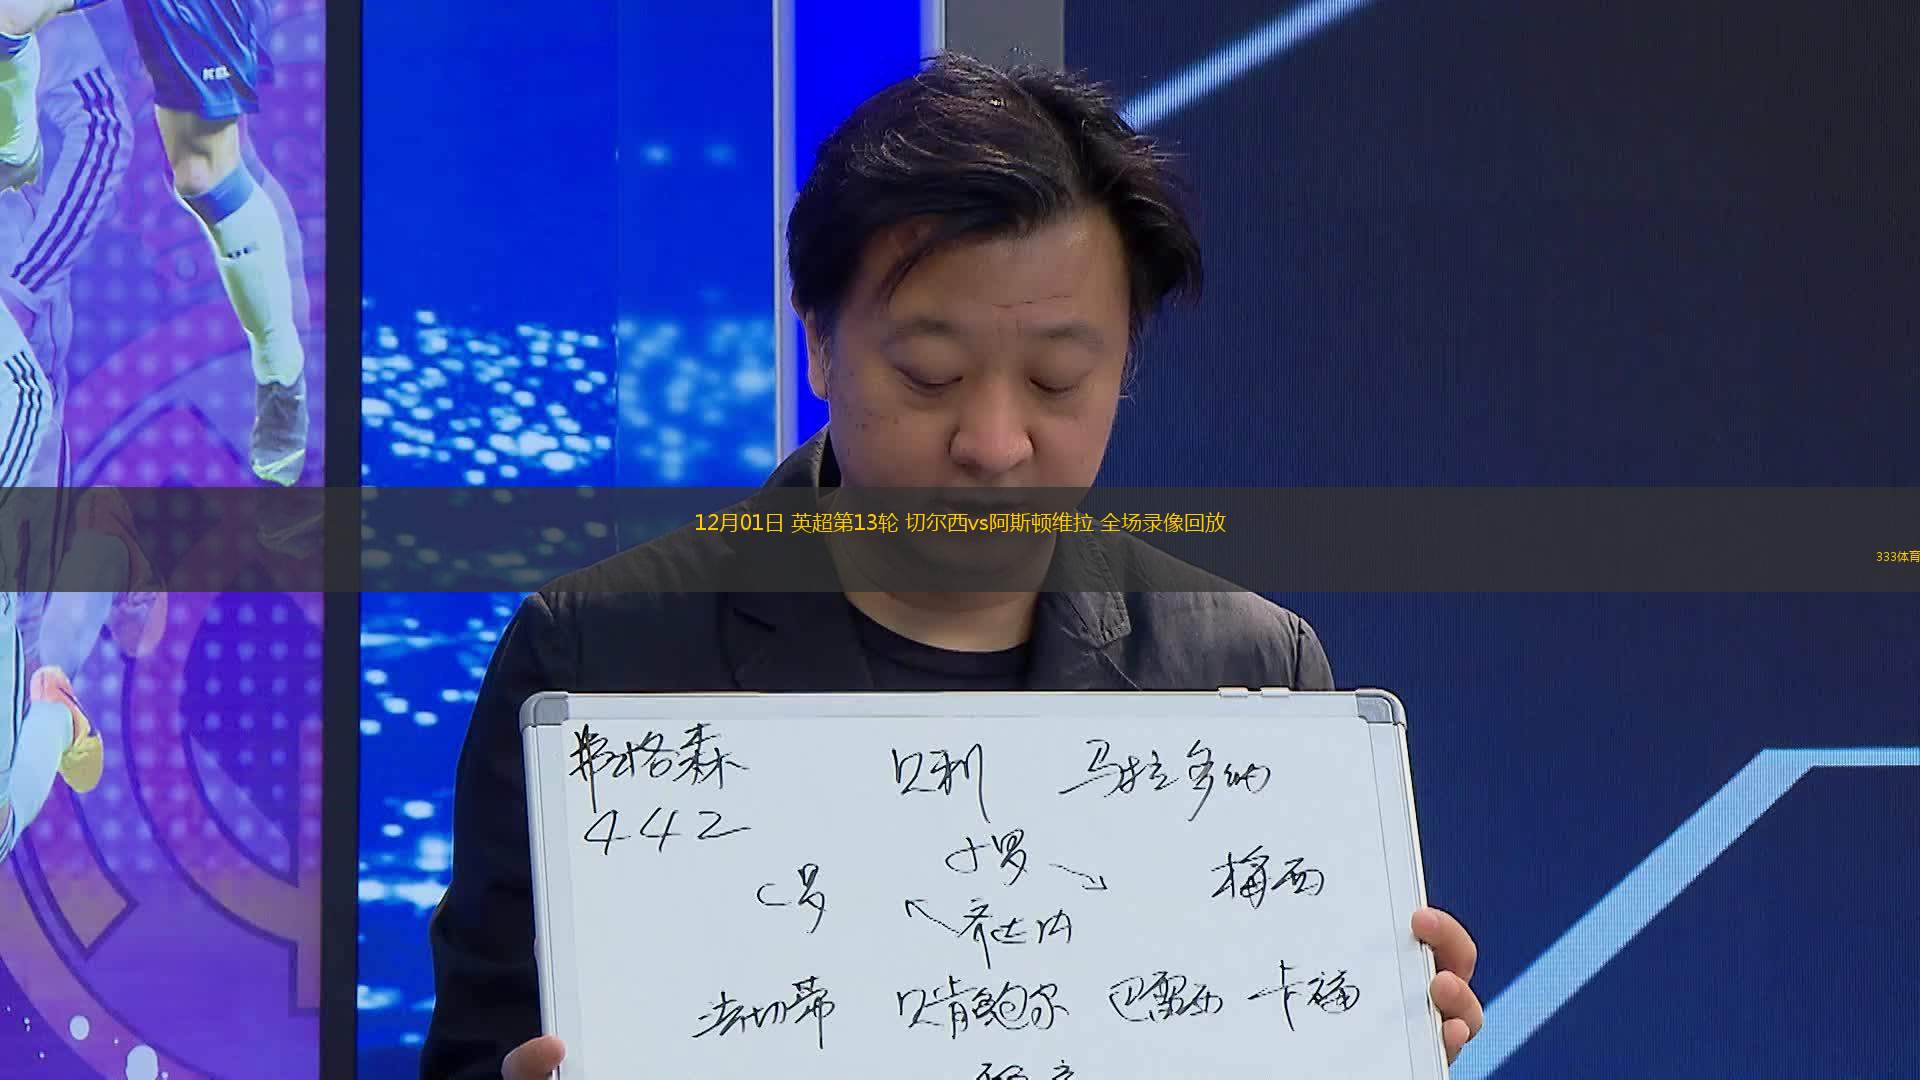 12月01日 英超第13轮 切尔西vs阿斯顿维拉 全场录像回放
333体育
弗格森 贝利 马拉多纳
442
小罗
C罗 梅西
齐达内
法切蒂 贝肯鲍尔 巴雷西 卡福